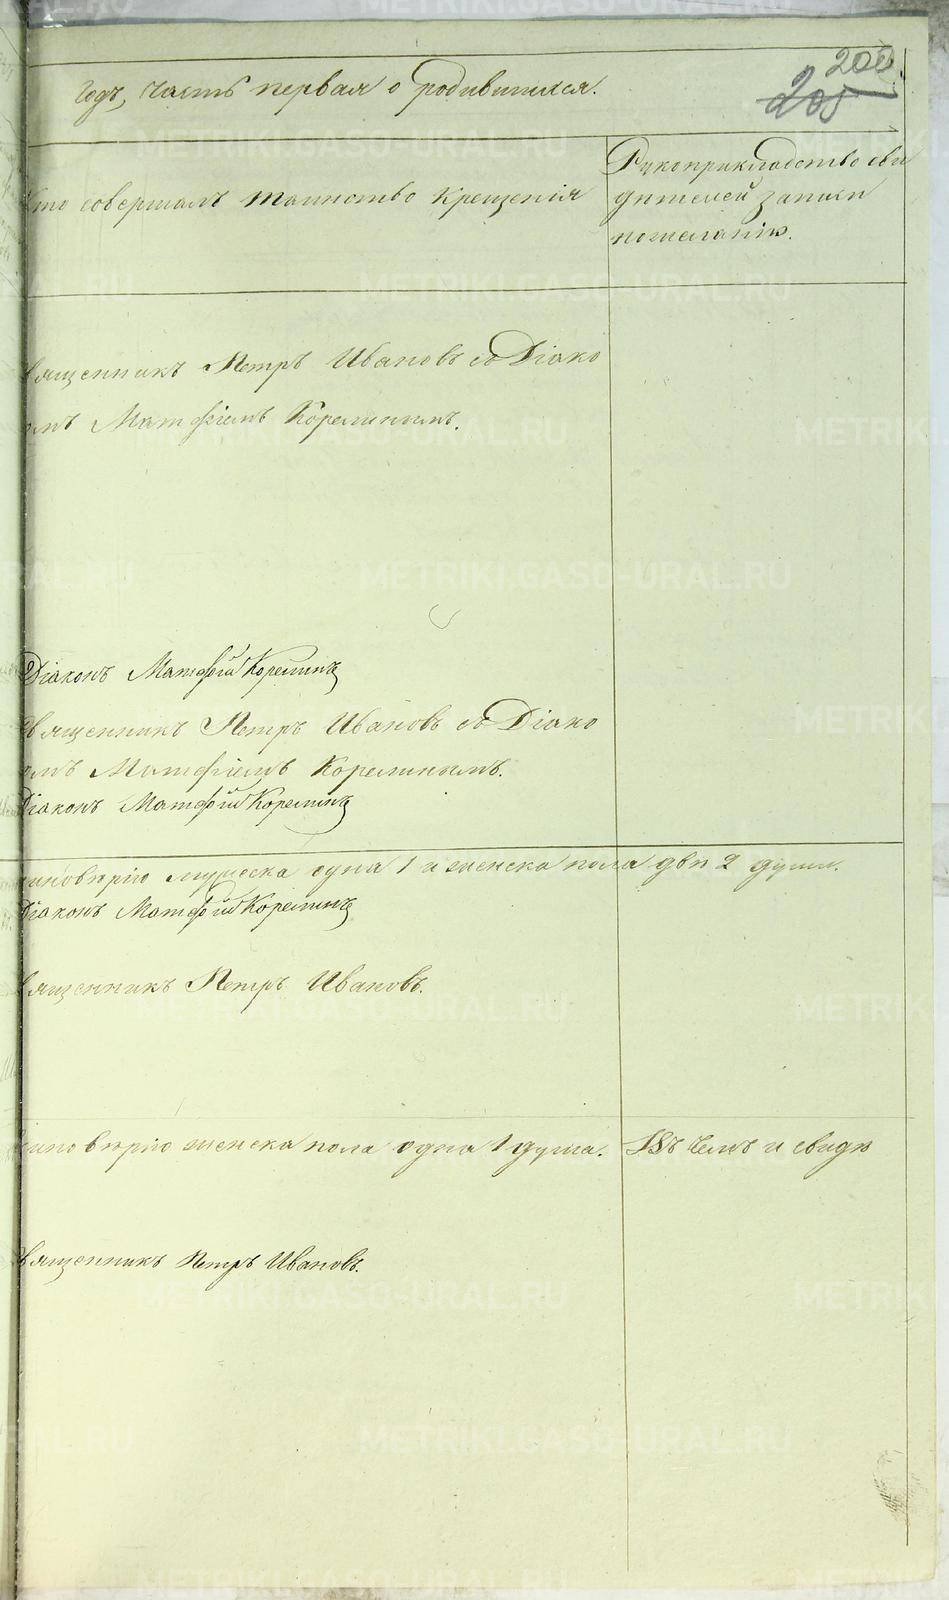 200
205
годъ, часть первая о родившихся.
Кто совершалъ таинство крещенія
Рукоприкладство сви
дѣтелей записи
по желанію.
Священникъ Петръ Ивановъ со Діако
омъ Матѳіемъ Корелинымъ.
Діаконъ Матѳей Корелинъ
Священникъ Петръ Ивановъ со Діако
омъ Матѳіемъ Корелинымъ.
Діаконъ Матѳей Корелинъ
иновѣрію мужеска одна 1 и женска пола двѣ 2 души.
Діаконъ Матѳей Корелинъ
вященникъ Петръ Ивановъ.
диновѣрію женска пола одна 1 душа.
Въ чемъ и свидѣ
Священникъ Петръ Ивановъ.
METRIKI.GASO-URAL.RU